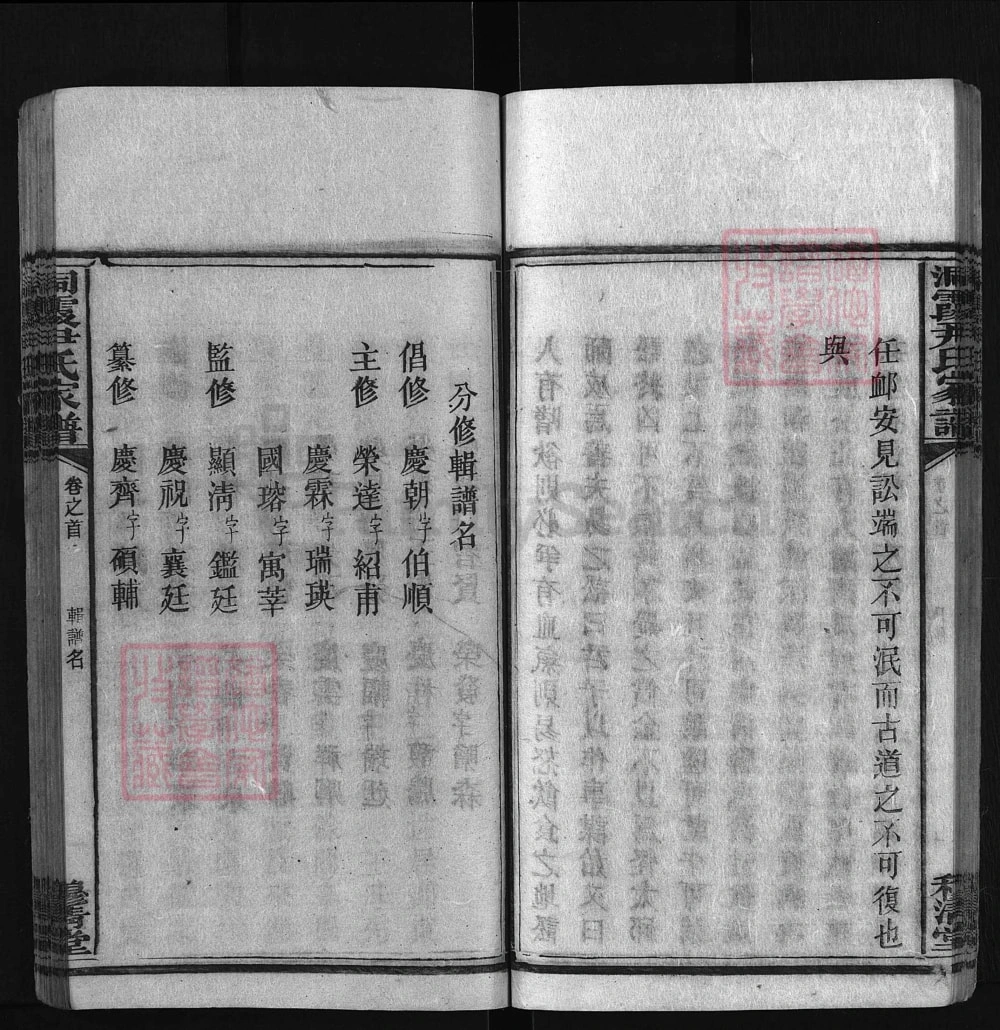 洞霞尹氏家譜
任卹安見訟端之不可泯而古道之不可復也
與
分修輯譜名
倡修 慶朝字伯順
主修 榮達字紹甫
慶霖字瑞瑛
國瑢字寓莘
監修 顯清字鑑廷
慶祝字襄廷
纂修 慶齊字碩輔
洞霞尹氏家譜 卷之首 輯譜名